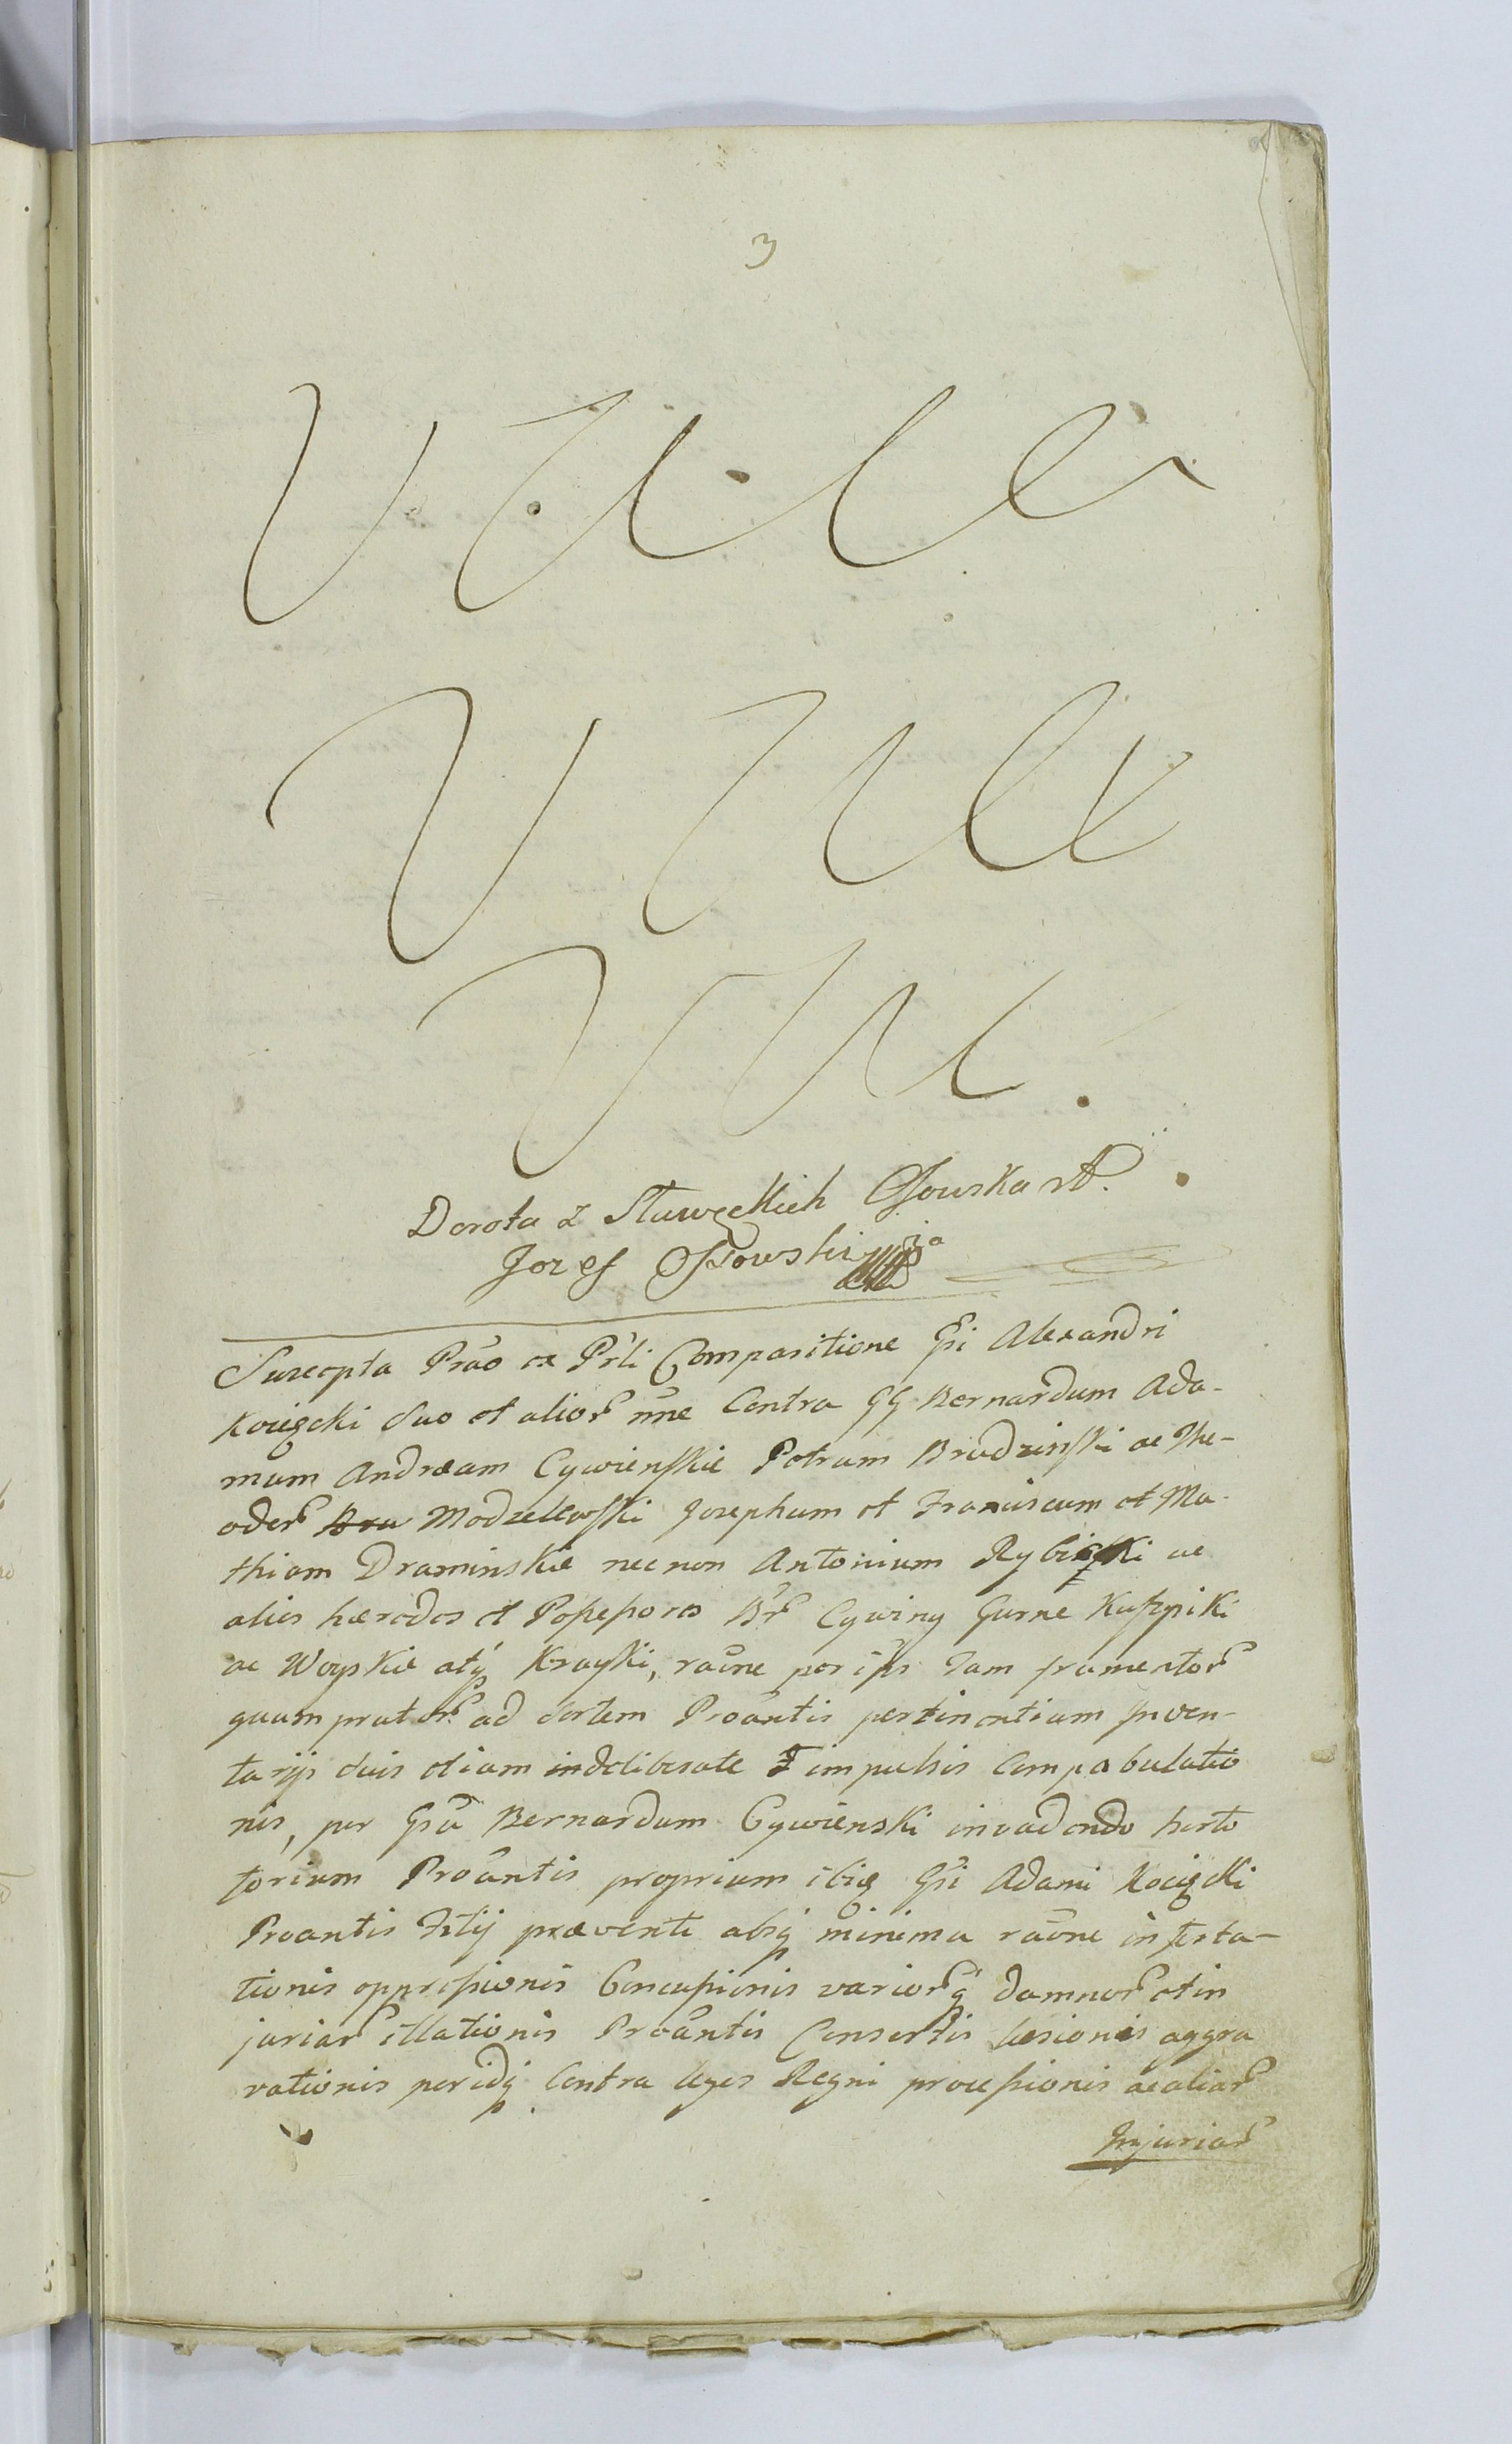 3
Dorota z Stawęckich Ossowska
Jozef Ossowski
Suscepta Prāo ex Prli Compositione Gsi Alexandri
Kocięcki suo et alior nne Contra GG Bernardum Ada-
mum Andræam Cywienskie Petrum Brudzinski ac The-
oder Bru Modzelewski Josephum et Franciscum et Ma-
thiam Draminskie nec non Antonium Rybicki ac
alios hæredes et Possessores Br Cywiny Gurne Kuszpiki
ac Woyskie atq Krayki, raōne per ips Tam frumentor
quam prator ad sortem Proāntis pertinentium Inven-
tarys suis etiam indeliberate impulsis Compabulatio
nis, per Gsū Bernardum Cywienski invadendo
torium Proāntis proprium ibiq Gsi Adami Kocięcki
Proantis Filij prævente absq minima raōne infesta-
tionis oppressionis Concussionis variorq damnor et in
juriar illationis Proāntis Consortis læsionis aggra
vationis peridq Contra leges Regni processionis ac aliar
Injuriar